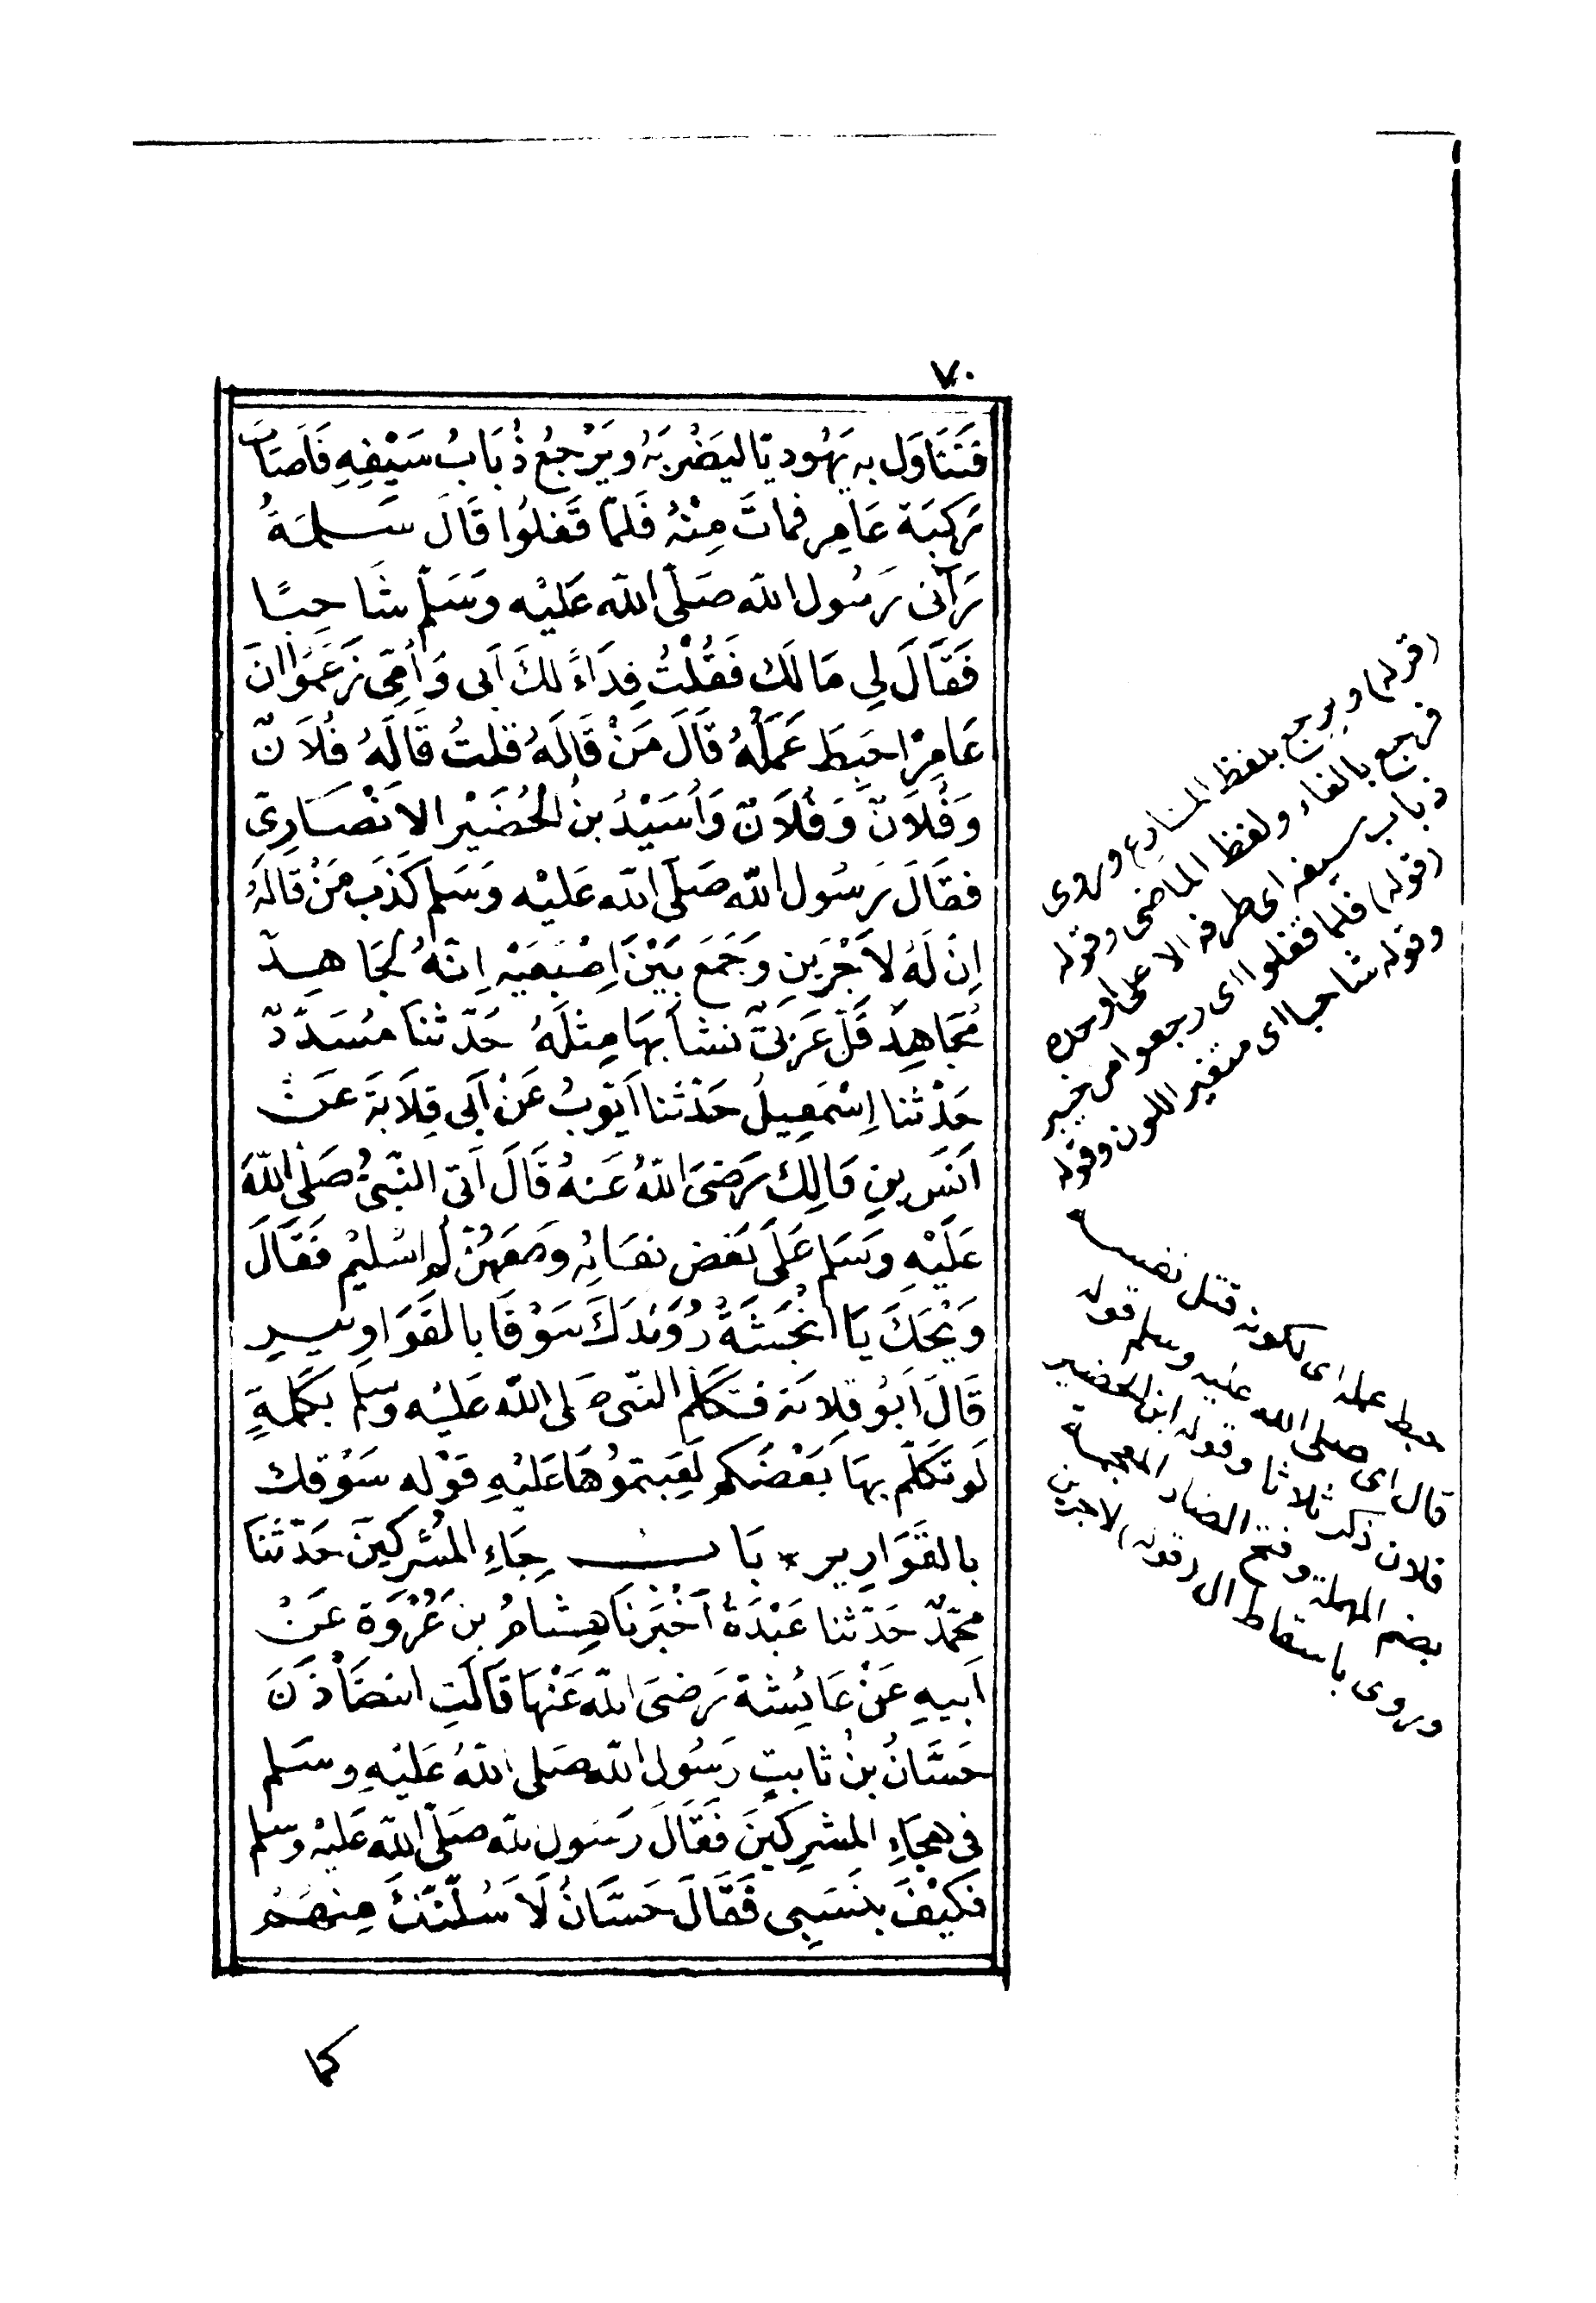 ٧٠
فَتَنَاوَل به يَهُوديّا ليَضْربَهُ ويَرْجعُ ذُبَابُ سَيْفِهِ فَاَصَابَ
رُكبَة عَامِر فماتَ مِنْهُ فَلمّا قَفلوُا قَالَ سَلمَةُ
رَآنى رَسُول الله صَلّى الله عَليْه وَسَلّم شَاحِبًا
فَقَالَ لِى مَا لَكَ فَقُلْتُ فِدَاءً لكَ اَبى وَاُمّى زَعَمُوا انَ
عَامِرًا حَبِطَ عَمَلُهُ قَالَ مَنْ قَالَهُ قلتُ قَالَهُ فُلَانٌ
وَفُلَانٌ وَفُلَانٌ وَاُسَيْدُ بنُ الْحُضَيْر الانْصَارِىّ
فقَالَ رَسُول اللّه صَلّى الله عَليْه وَسَلم كَذَبَ مَنْ قالَهُ
اِنَ لَهُ لاَجْرَينِ وَجَمَعَ بَيْنَ اِصْبَعَيْه اِنّهُ لَجَاهِدٌ
مُجَاهِدٌ قَلّ عَرَبىّ نشاَ بهَا مِثلَهُ حَدّثنا مُسَدّدٌ
حَدّثنا اِسْمَعِيلُ حَدّثَنا اَيّوبُ عَنْ اَبى قِلَابَةَ عَنْ
اَنَسِ بنِ مَالِكٍ رَضىَ اللّهُ عَنهُ قَالَ اَتَى النّبىُّ صَلّى اللّهَ
عَلَيْهِ وَسَلم عَلَى بَعْض نسَائِه وَمَعَهُنّ اُم سُليْم فَقَالَ
وَيْحَكَ يَا اَنْجَشَةُ رُوَيْدَكَ سَوْقًا بالقَوَاريرِ
قَالَ اَبُو قِلابَة فتكَلم النّبى صَلى اللّه عَليْه وسلم بكَلمَةٍ
لَو تَكَلّم بهَا بَعْضُكم لَعِبتموُهَا عَليْهِ قَوْله سَوْقك
بالقَوَارِير * بَاب هِجَاءِ المُشْركينَ حَدّثَنَا
محمّدٌ حَدّثنا عَبْدَةُ اَخْبَرَنا هِشَامُ بن عُرْوَة عَنْ
اَبيهِ عَنْ عَايُشة رَضىَ اللّه عَنْهَا قَالَتِ اسْتَأْذَنَ
حَسَّانُ بنُ ثابتٍ رَسُول اللّه صَلى اللّهُ عَليْهِ وسَلم
فى هجَاءِ المشرِكينَ فَقَالَ رَسُول الله صَلّى اللّه عَليْه وسلم
فَكيْفَ بنَسَبِى فَقَالَ حَسَّانُ لَاَسُلّنّكَ مِنهُمْ
كما
(قوله) ويرجع بلفظ المضارع وروى
فرجع بالفاء ولفظ الماضى وقوله
ذباب سيفه اى طرفه الاعلى او حده
(قوله) فلما قفلوا اى رجعوا من خيبر
وقوله شاحبا اى متغير اللون وقوله
حبط عمله اى لكونه قتل نفسه
قال اى صلى الله عليه وسلم قوله
فلان ذكر ثلاثا وقوله ابن الحضير
بضم المهملة وفتح الضاد المعجمة
وروى باسقاط ال (قوله) لاجرين